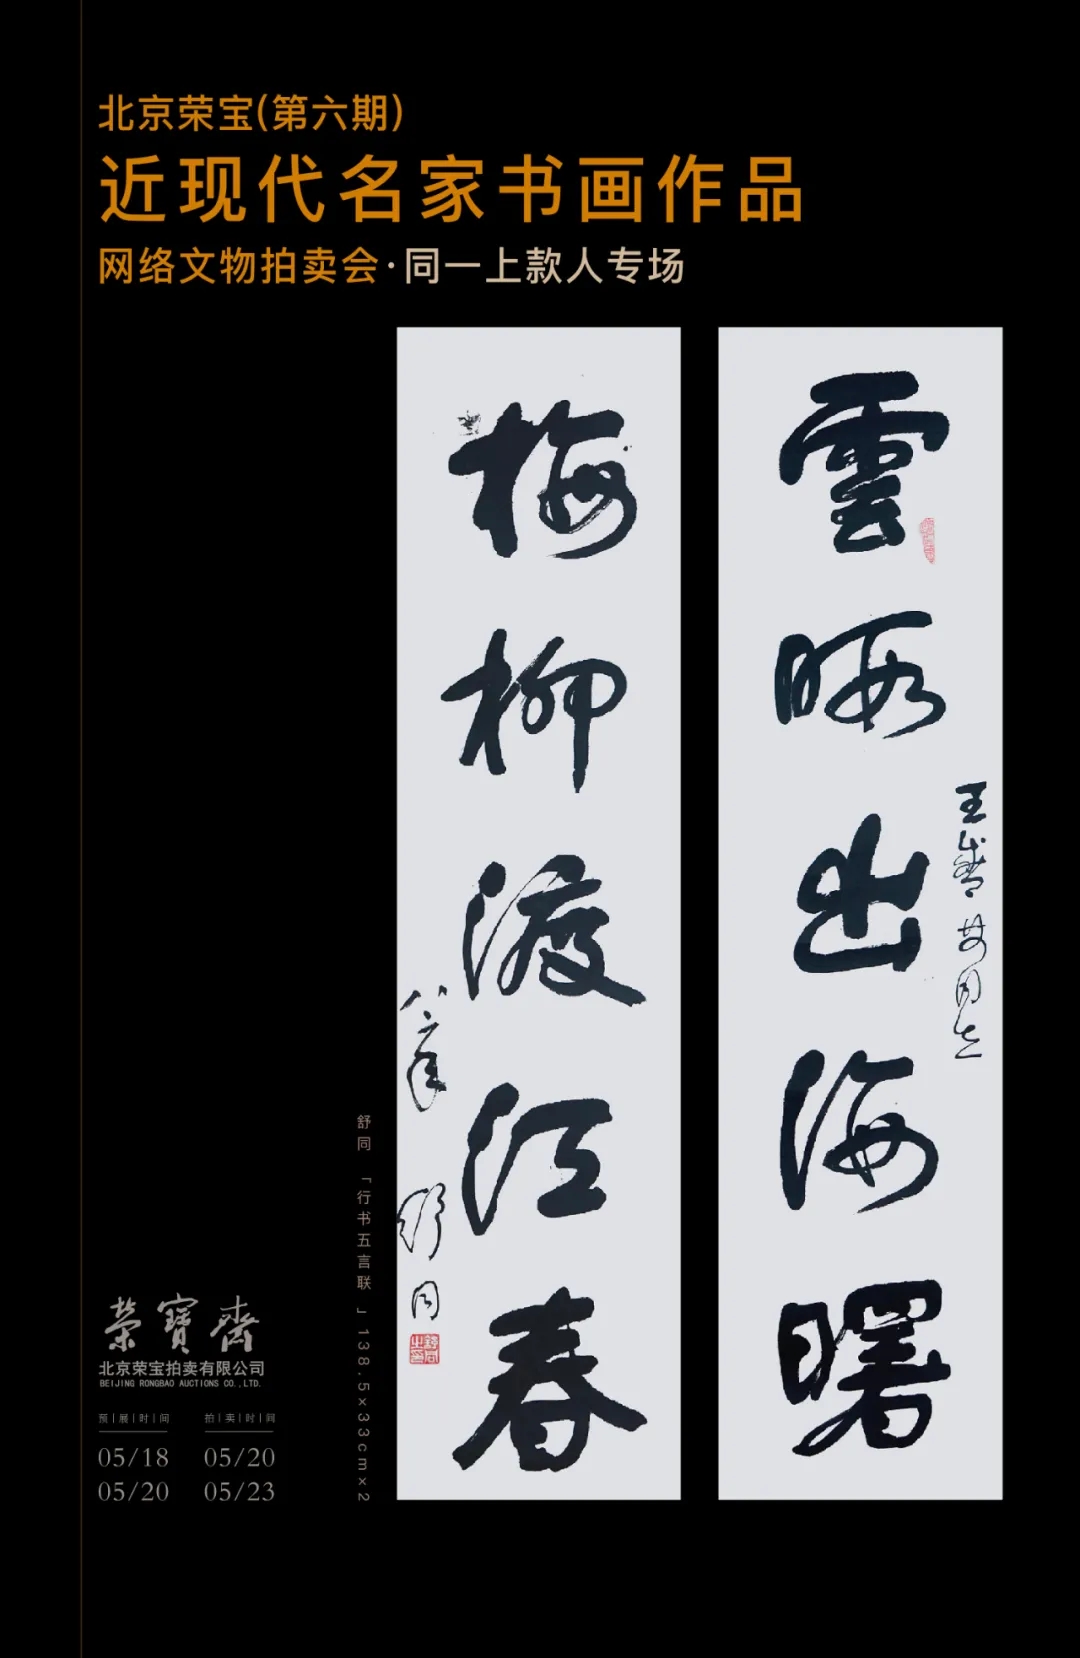 北京荣宝(第六期)
近现代名家书画作品
网络文物拍卖会·同一上款人专场
雲
霞
出
海
曙
梅
柳
渡
江
春
八六年
舒同
舒同「行书五言联」138.5×33cm×2
榮寶齋
北京荣宝拍卖有限公司
BEIJING RONGBAO AUCTIONS CO.,LTD.
预|展|时|间
05/18
05/20
拍|卖|时|间
05/20
05/23